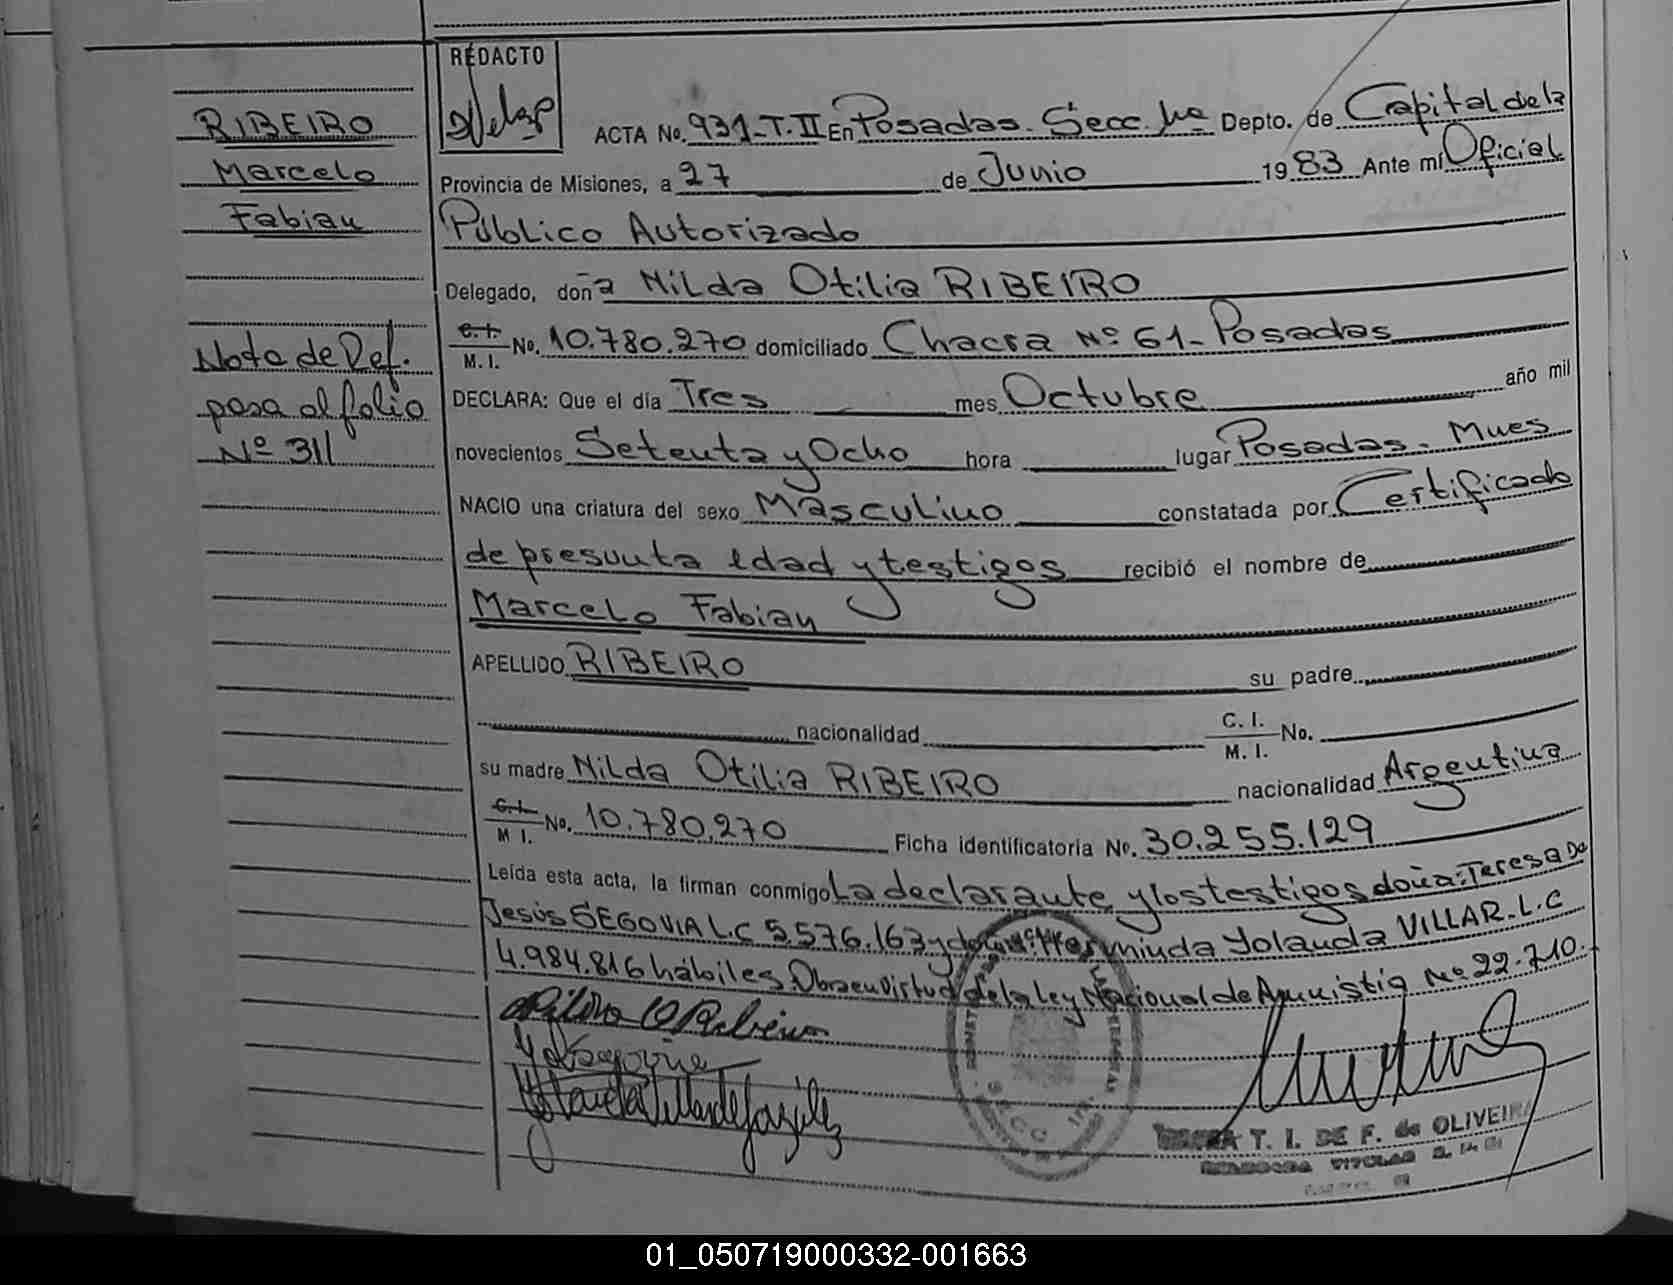 REDACTO
RIBEIRO
Marcelo
Fabian
Nota de Def.
pasa al folio
Nº 311
ACTA No. 931-T.II En Posadas. Secc. 1ra Depto. de Capital de la
Provincia de Misiones, a 27 de Junio 1983 Ante mí Oficial
Público Autorizado
Delegado, doña Nilda Otilia RIBEIRO
C.I. M.I. No. 10.780.270 domiciliado Chacra Nº 61- Posadas
DECLARA: Que el día Tres mes Octubre año mil
novecientos Setenta y Ocho hora lugar Posadas. Mnes
NACIO una criatura del sexo Masculino constatada por Certificado
de presunta edad y testigos recibió el nombre de
Marcelo Fabian
APELLIDO RIBEIRO su padre
nacionalidad C. I. M. I. No.
su madre Nilda Otilia RIBEIRO nacionalidad Argentina
C.I. M I. No. 10.780.270 Ficha identificatoria No. 30.255.129
Leída esta acta, la firman conmigo La declarante y los testigos doña: Teresa De
Jesús SEGOVIA L.C 5.576.163 y doña: Herminda Yolanda VILLAR. L.C
4.984.816 hábiles. Obra en virtud de la ley Nacional de Amnistia Nº 22.710.
T. I. DE F. de OLIVEIRA
TITULAR